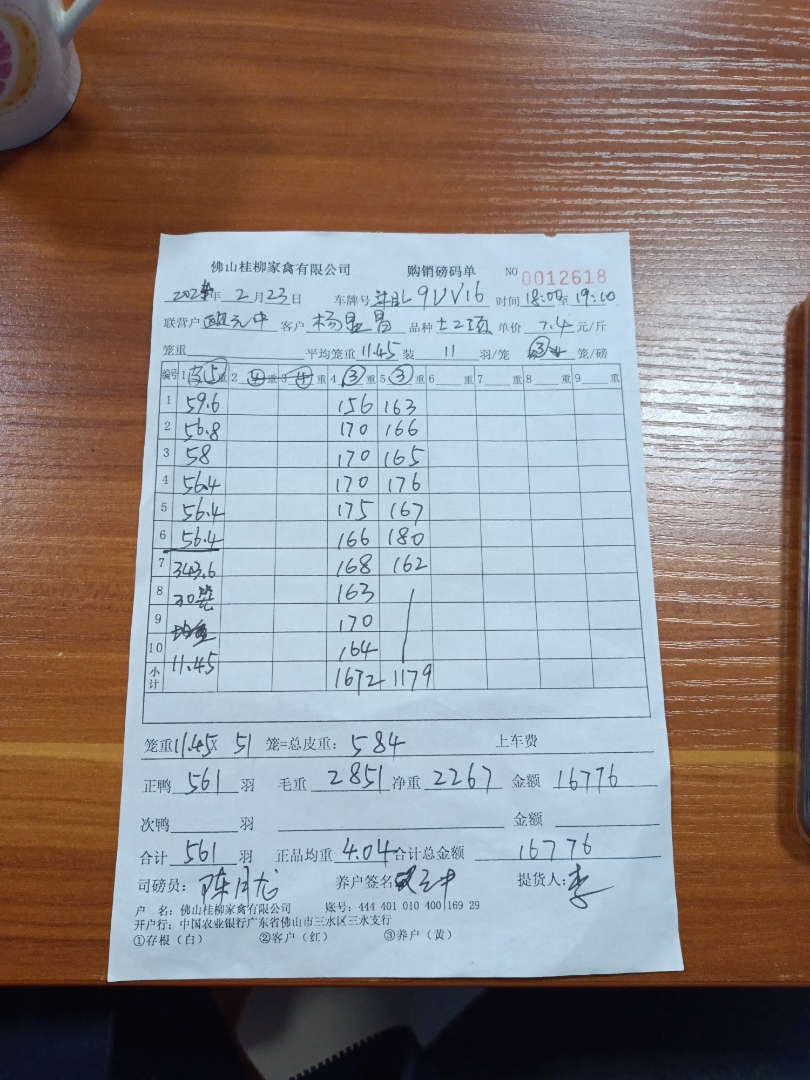 佛山桂柳家禽有限公司 购销磅码单 NO 0012618
年 2 月 23 日 车牌号 9VV16 时间 18:00 至 19:10
联营户 客户 杨显昌 品种 土2项 单价 7.4 元/斤
笼重 平均笼重 11.45 装 11 羽/笼 ③ 笼/磅
编号 1 ⑤ 重 2 ④ 重 3 ④ 重 4 ③ 重 5 ③ 重 6 重 7 重 8 重 9 重
1 59.6 156 163
2 56.8 170 166
3 58 170 165
4 56.4 170 176
5 56.4 175 167
6 56.4 166 180
7 343.6 168 162
8 30笼 163
9 170
10 11.45 164
小计 1672 1179
笼重 11.45 X 51 笼=总皮重: 584 上车费
正鸭 561 羽 毛重 2851 净重 2267 金额 16776
次鸭 羽 金额
合计 561 羽 正品均重 4.04 合计总金额 16776
司磅员: 陈月龙 养户签名 提货人: 李
户 名: 佛山桂柳家禽有限公司 账号: 444 401 010 400 169 29
开户行: 中国农业银行广东省佛山市三水区三水支行
①存根（白） ②客户（红） ③养户（黄）